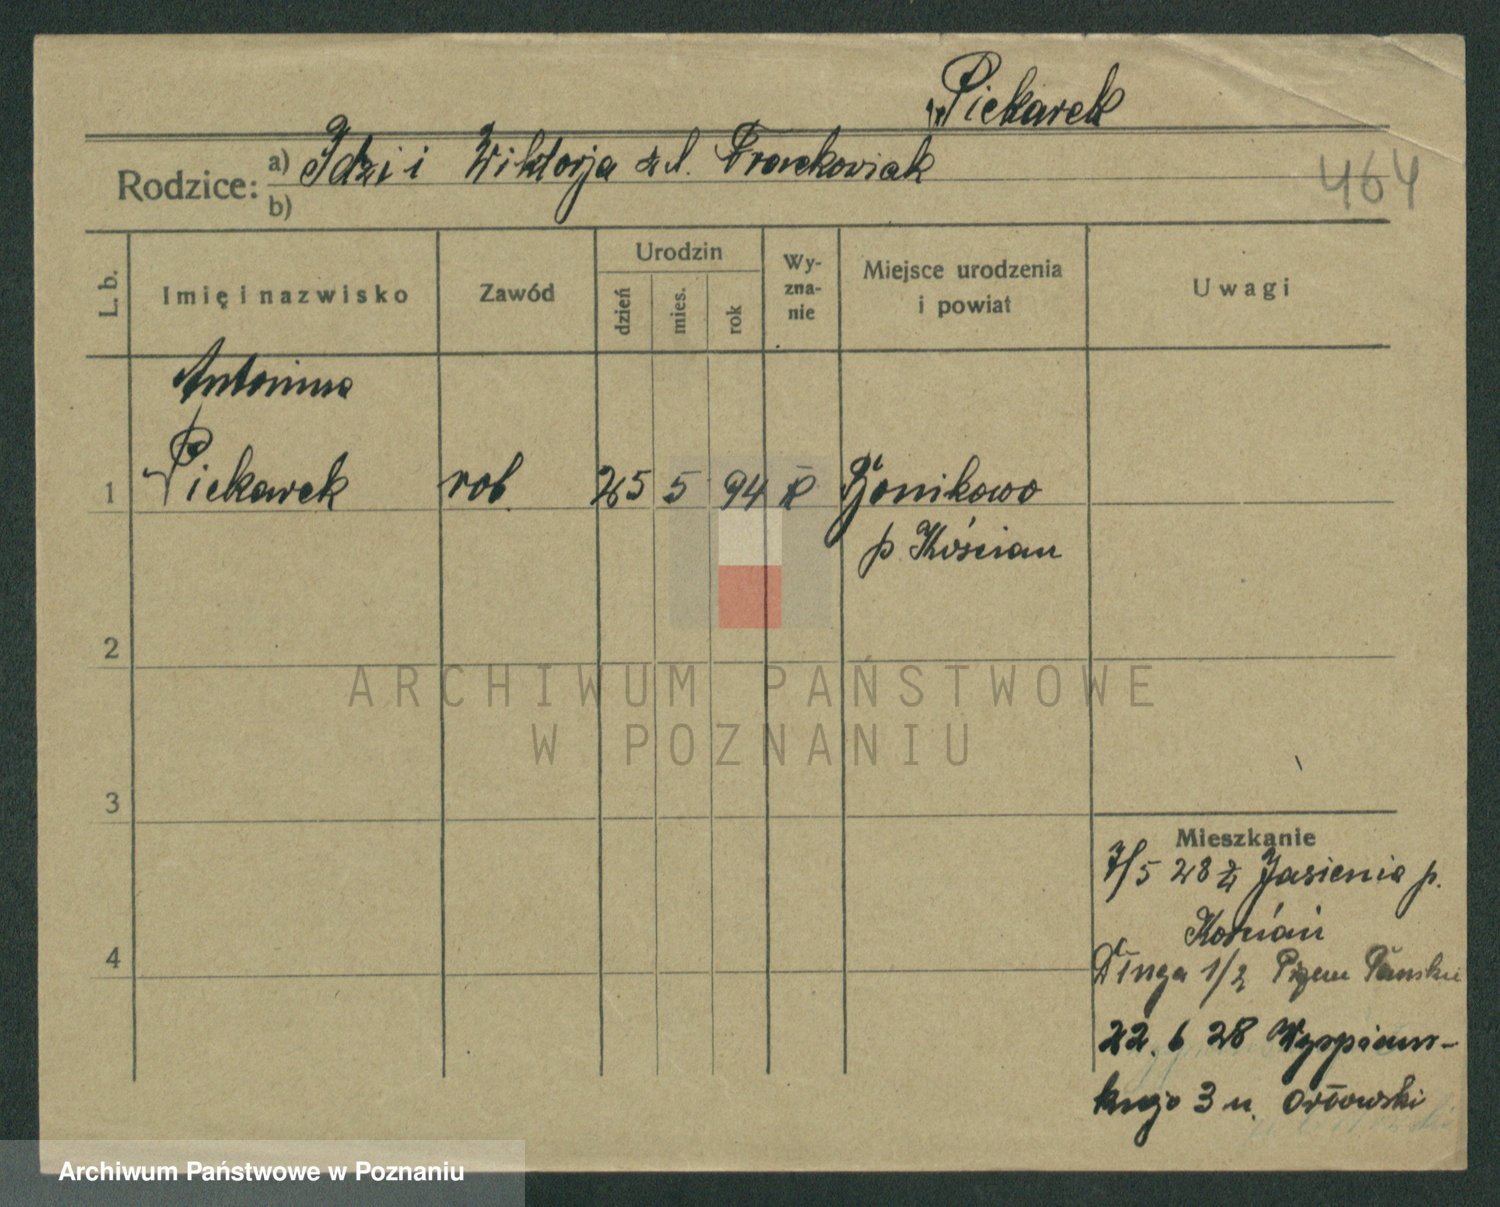 Piekarek
Rodzice: a) Idzi i Wiktorja zd. Frąckowiak
b)
464
L. b.
Imię i nazwisko
Zawód
Urodzin
dzień
mies.
rok
Wy-
zna-
nie
Miejsce urodzenia
i powiat
Uwagi
Antonina
1 Piekarek rob. 25 5 94 R Bonikowo
p. Kościan
2
ARCHIWUM PAŃSTWOWE
W POZNANIU
3
Mieszkanie
7/5 28 z Jasienia p.
Kościan
4
Długa 1/2
22. 6 28 Wyspiań-
skiego 3 u. Orłowski
Archiwum Państwowe w Poznaniu